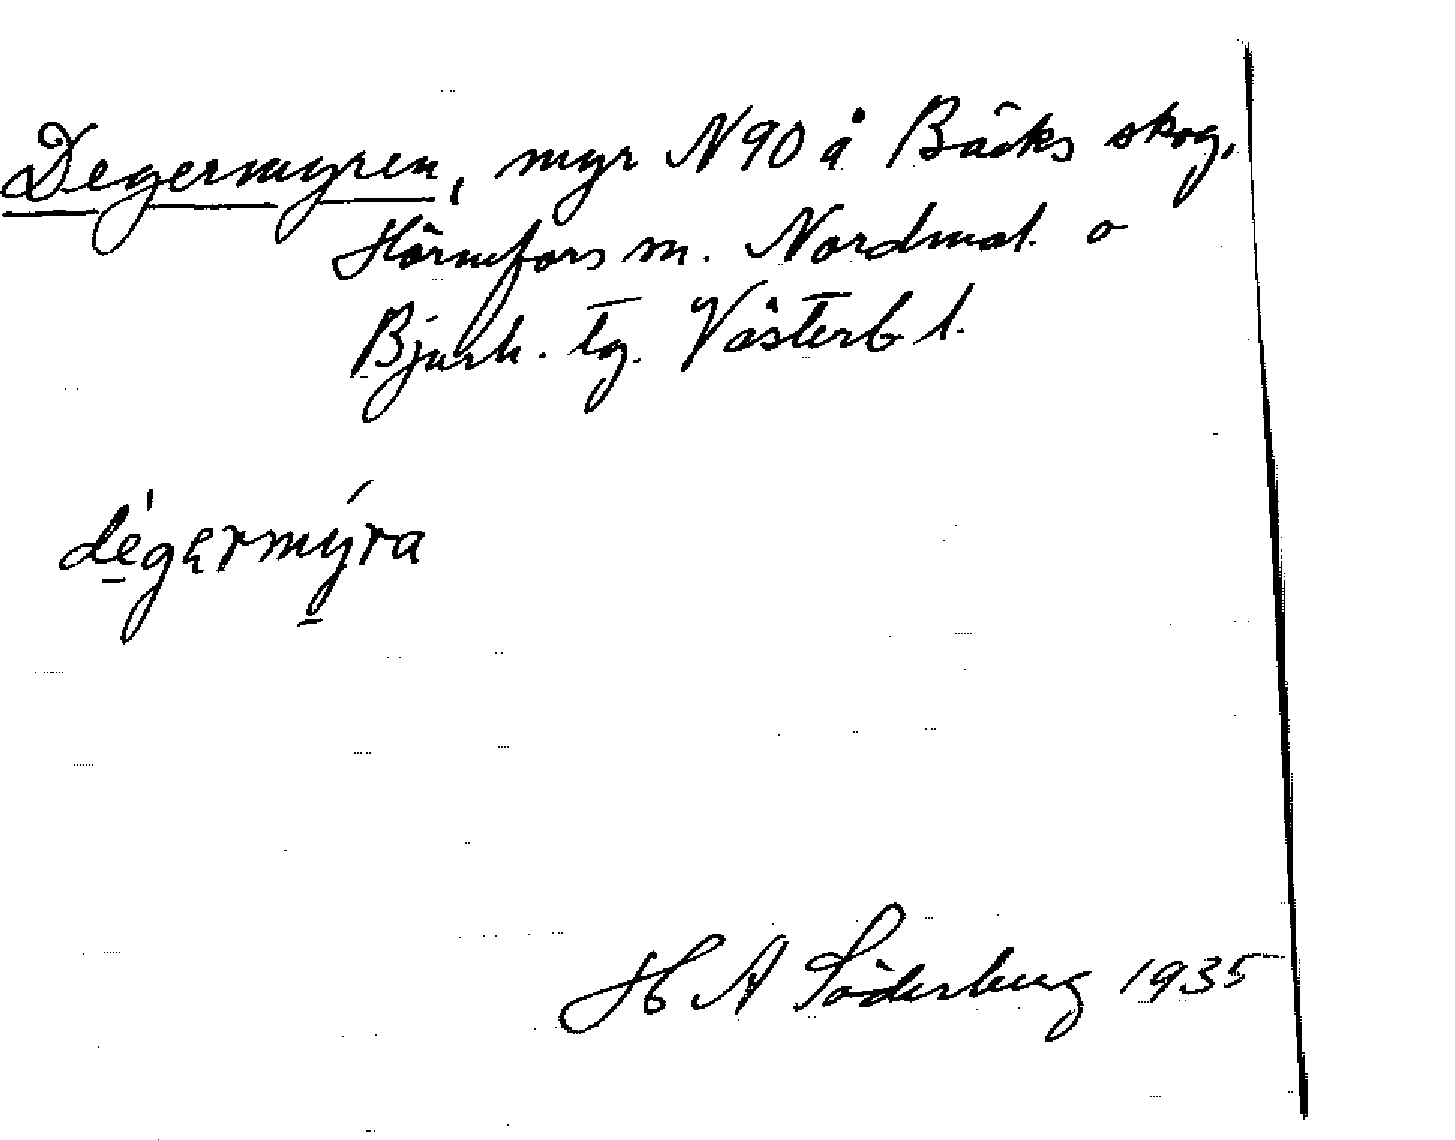 Degermyren, myr N90 å Bäcks skog,
Hörnefors m. Nordmal. o
Bjurh. tg. Västerb l.
dégermýra
H A Söderberg 1935